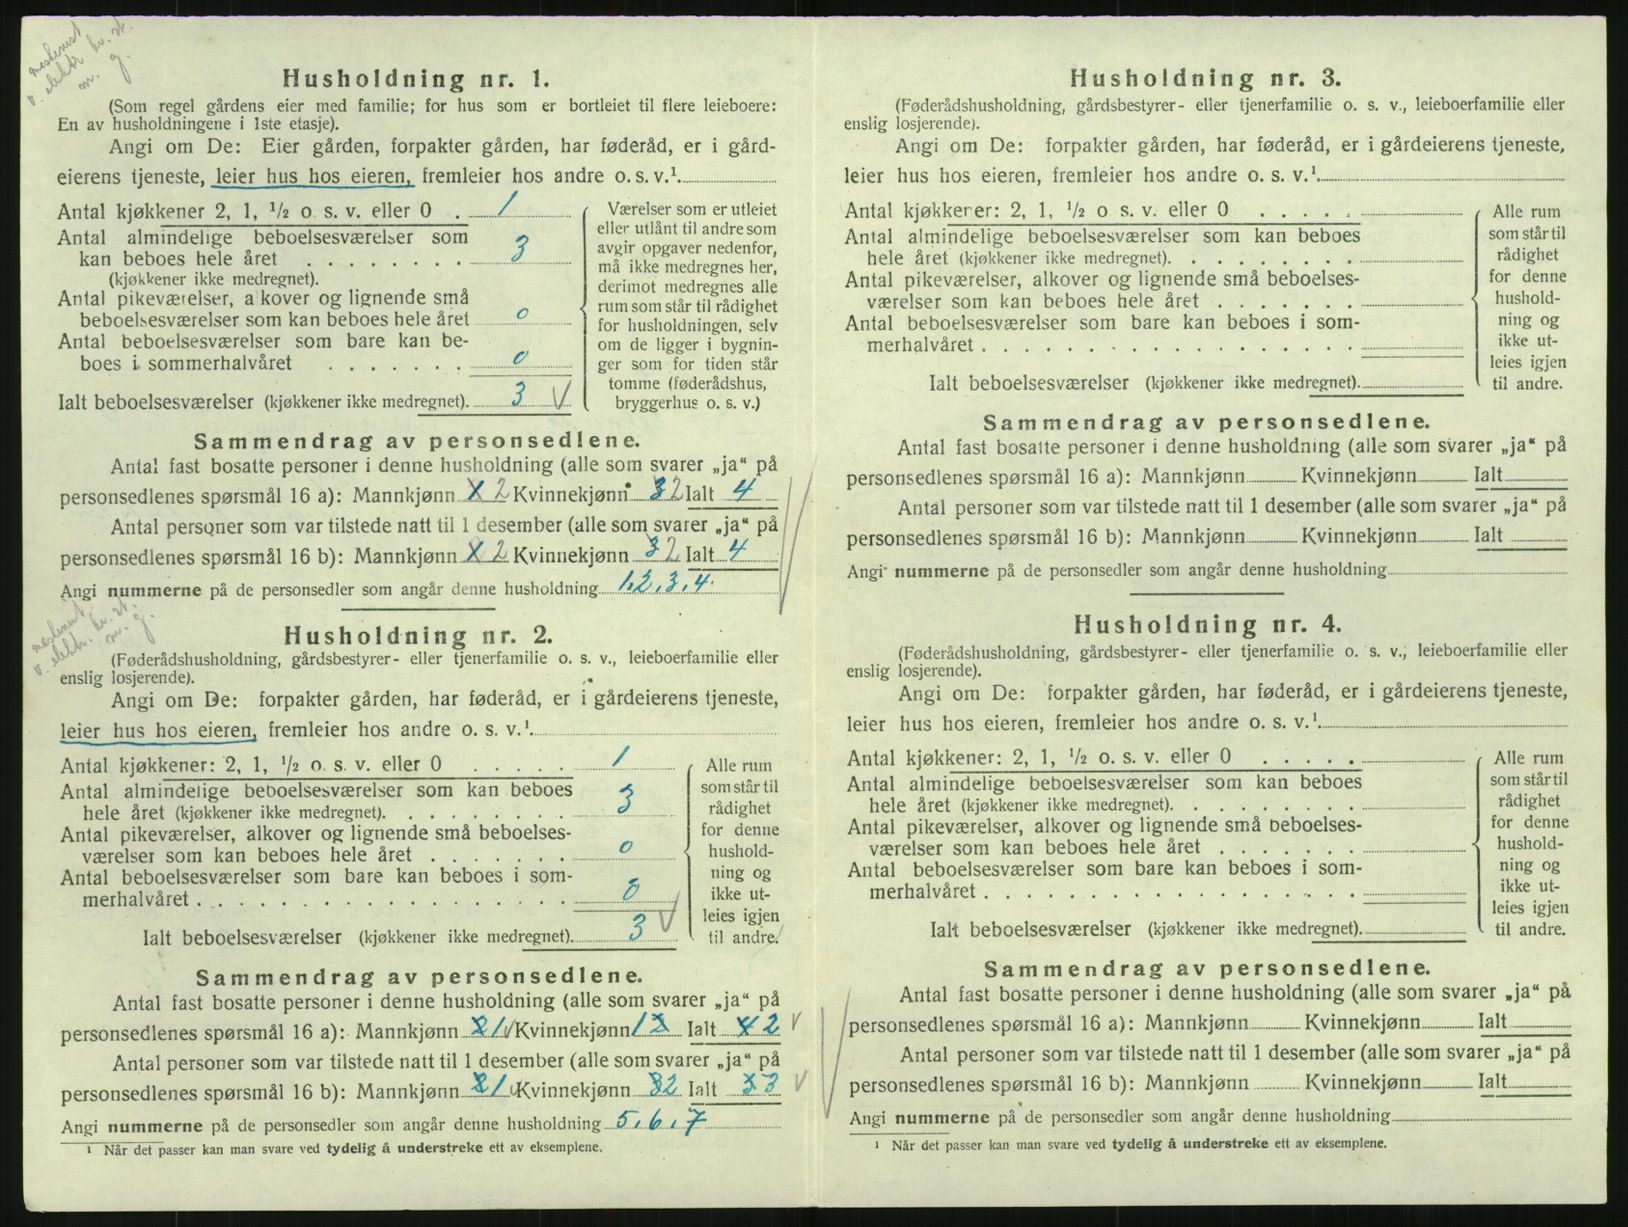 Husholdning nr. 1.
(Som regel gårdens eier med familie; for hus som er bortleiet til flere leieboere:
En av husholdningene i 1ste etasje).
Angi om De: Eier gården, forpakter gården, har føderåd, er i gård-
eierens tjeneste, leier hus hos eieren, fremleier hos andre o. s. v.¹
Antal kjøkkener 2, 1, ½ o s. v. eller 0 . 1
Antal almindelige beboelsesværelser som
kan beboes hele året . . . . . . . . 3
(kjøkkener ikke medregnet).
Antal pikeværelser, a kover og lignende små
beboelsesværelser som kan beboes hele året 0
Antal beboelsesværelser som bare kan be-
boes i sommerhalvåret . . . . . . . 0
Ialt beboelsesværelser (kjøkkener ikke medregnet). 3 √
Værelser som er utleiet
eller utlånt til andre som
avgir opgaver nedenfor,
må ikke medregnes her,
derimot medregnes alle
rum som står til rådighet
for husholdningen, selv
om de ligger i bygnin-
ger som for tiden står
tomme (føderådshus,
bryggerhus o. s. v.)
Sammendrag av personsedlene.
Antal fast bosatte personer i denne husholdning (alle som svarer „ja“ på
personsedlenes spørsmål 16 a): Mannkjønn 2 Kvinnekjønn 3 2 Ialt 4
Antal personer som var tilstede natt til 1 desember (alle som svarer „ja“ på
personsedlenes spørsmål 16 b): Mannkjønn 2 Kvinnekjønn 3 2 Ialt 4
Angi nummerne på de personsedler som angår denne husholdning 1, 2, 3, 4.
Husholdning nr. 2.
(Føderådshusholdning, gårdsbestyrer- eller tjenerfamilie o. s. v., leieboerfamilie eller
enslig losjerende).
Angi om De: forpakter gården, har føderåd, er i gårdeierens tjeneste,
leier hus hos eieren, fremleier hos andre o. s. v.¹
Antal kjøkkener: 2, 1, ½ o. s. v. eller 0 . . . . . 1
Antal almindelige beboelsesværelser som kan beboes
hele året (kjøkkener ikke medregnet). . . . . . . . 3
Antal pikeværelser, alkover og lignende små beboelses-
værelser som kan beboes hele året . . . . . . . 0
Antal beboelsesværelser som bare kan beboes i som-
merhalvåret . . . . . . . . . . . . . . . . . 0
Ialt beboelsesværelser (kjøkkener ikke medregnet). 3 √
Alle rum
som står til
rådighet
for denne
hushold-
ning og
ikke ut-
leies igjen
til andre.
Sammendrag av personsedlene.
Antal fast bosatte personer i denne husholdning (alle som svarer „ja“ på
personsedlenes spørsmål 16 a): Mannkjønn 2 1 √ Kvinnekjønn 1 2 Ialt 4 2 √
Antal personer som var tilstede natt til 1 desember (alle som svarer „ja“ på
personsedlenes spørsmål 16 b): Mannkjønn 2 1 √ Kvinnekjønn 3 2 Ialt 3 √
Angi nummerne på de personsedler som angår denne husholdning 5, 6, 7
¹ Når det passer kan man svare ved tydelig å understreke ett av eksemplene.
Husholdning nr. 3.
(Føderådshusholdning, gårdsbestyrer- eller tjenerfamilie o. s. v., leieboerfamilie eller
enslig losjerende).
Angi om De: forpakter gården, har føderåd, er i gårdeierens tjeneste,
leier hus hos eieren, fremleier hos andre o. s. v.¹
Antal kjøkkener: 2, 1, ½ o s. v. eller 0 . . . . .
Antal almindelige beboelsesværelser som kan beboes
hele året (kjøkkener ikke medregnet). . . . . . . . .
Antal pikeværelser, alkover og lignende små beboelses-
værelser som kan beboes hele året . . . . . . .
Antal beboelsesværelser som bare kan beboes i som-
merhalvåret . . . . . . . . . . . . . . . . . .
Ialt beboelsesværelser (kjøkkener ikke medregnet).
Alle rum
som står til
rådighet
for denne
hushold-
ning og
ikke ut-
leies igjen
til andre.
Sammendrag av personsedlene.
Antal fast bosatte personer i denne husholdning (alle som svarer „ja“ på
personsedlenes spørsmål 16 a): Mannkjønn Kvinnekjønn Ialt
Antal personer som var tilstede natt til 1 desember (alle som svarer „ja“ på
personsedlenes spørsmål 16 b): Mannkjønn Kvinnekjønn Ialt
Angi nummerne på de personsedler som angår denne husholdning
Husholdning nr. 4.
(Føderådshusholdning, gårdsbestyrer- eller tjenerfamilie o. s. v., leieboerfamilie eller
enslig losjerende).
Angi om De: forpakter gården, har føderåd, er i gårdeierens tjeneste,
leier hus hos eieren, fremleier hos andre o. s. v.¹
Antal kjøkkener: 2, 1, ½ o. s. v. eller 0 . . . . .
Antal almindelige beboelsesværelser som kan beboes
hele året (kjøkkener ikke medregnet). . . . . . . . .
Antal pikeværelser, alkover og lignende små beboelses-
værelser som kan beboes hele året . . . . . . .
Antal beboelsesværelser som bare kan beboes i som-
merhalvåret . . . . . . . . . . . . . . . . . .
Ialt beboelsesværelser (kjøkkener ikke medregnet).
Alle rum
som står til
rådighet
for denne
hushold-
ning og
ikke ut-
leies igjen
til andre.
Sammendrag av personsedlene.
Antal fast bosatte personer i denne husholdning (alle som svarer „ja“ på
personsedlenes spørsmål 16 a): Mannkjønn Kvinnekjønn Ialt
Antal personer som var tilstede natt til 1 desember (alle som svarer „ja“ på
personsedlenes spørsmål 16 b): Mannkjønn Kvinnekjønn Ialt
Angi nummerne på de personsedler som angår denne husholdning
¹ Når det passer kan man svare ved tydelig å understreke ett av eksemplene.